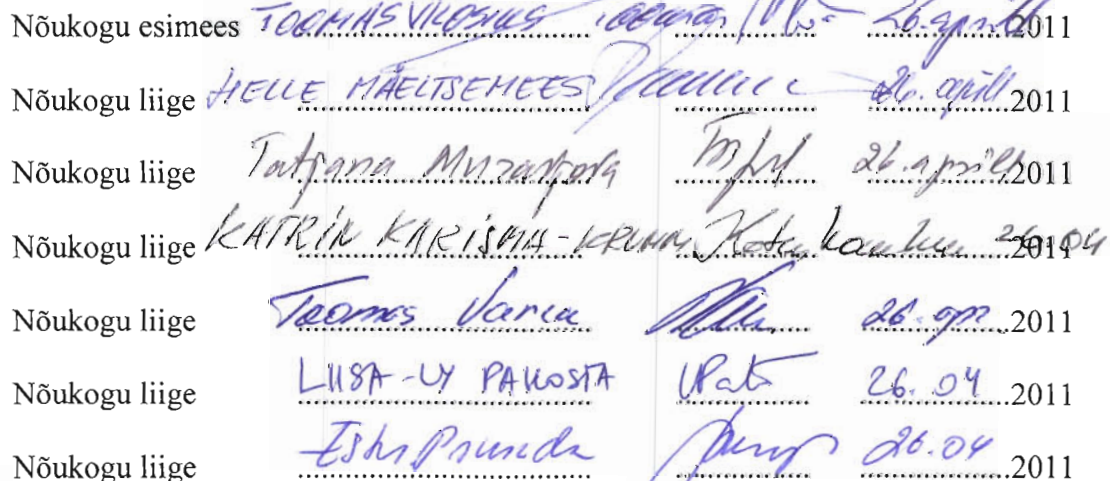 Nõukogu esimees TOOMAS VILOSIUS Toomas 26. aprill 2011
Nõukogu liige HELLE MÄELTSEMEES 26. aprill 2011
Nõukogu liige Tatjana Muravjova 26. aprill 2011
Nõukogu liige KATRIN KARISMA-KRUMM 26.04 2011
Nõukogu liige Toomas Varek 26. apr. 2011
Nõukogu liige LIISA-LY PAKOSTA LPak 26. 04 2011
Nõukogu liige 26.04 2011